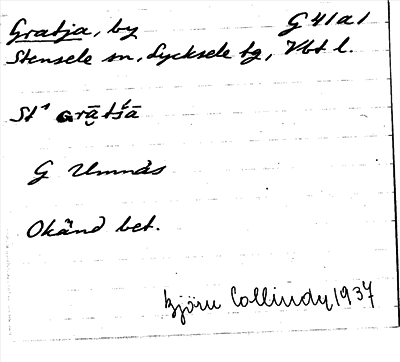 Gratja, by G 41 a 1
Stensele sn, Lycksele tg, Vbt l.
G Umnäs
Okänd bet.
Björn Collinder 1937